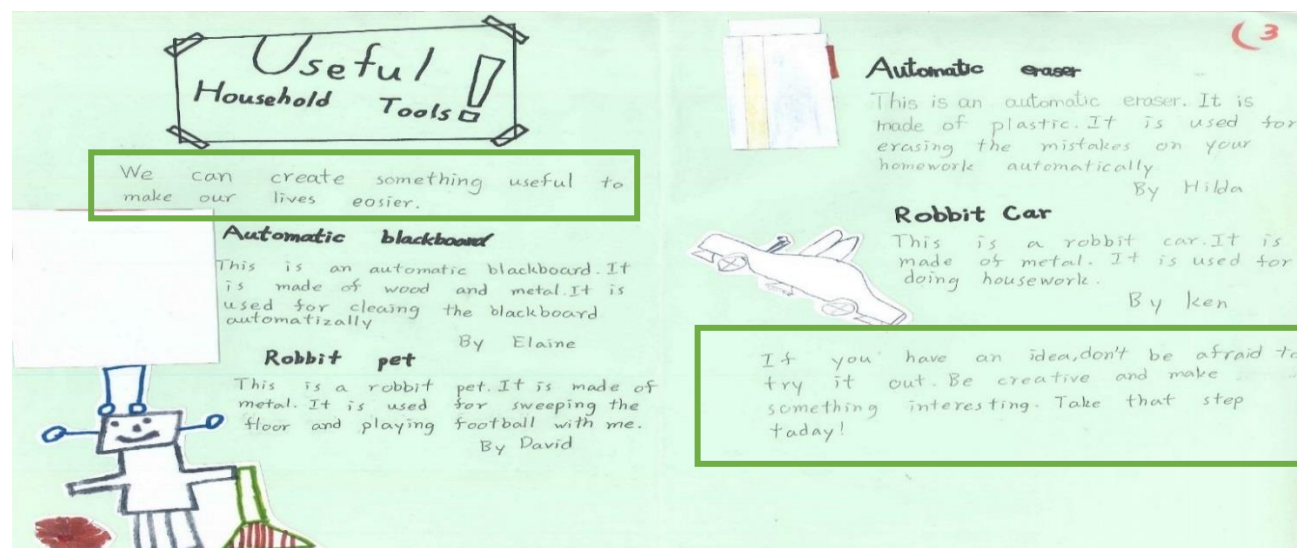 Useful
Household Tools!
We can create something useful to
make our lives easier.
Automatic blackboard
This is an automatic blackboard. It
is made of wood and metal. It is
used for cleaing the blackboard
automatizally
By Elaine
Robbit pet
This is a robbit pet. It is made of
metal. It is used for sweeping the
floor and playing football with me.
By David
(3
Automatic eraser
This is an automatic eraser. It is
made of plastic. It is used for
erasing the mistakes on your
homework automatically
By Hilda
Robbit Car
This is a robbit car. It is
made of metal. It is used for
doing housework.
By Ken
If you have an idea, don't be afraid to
try it out. Be creative and make
something interesting. Take that step
taday!